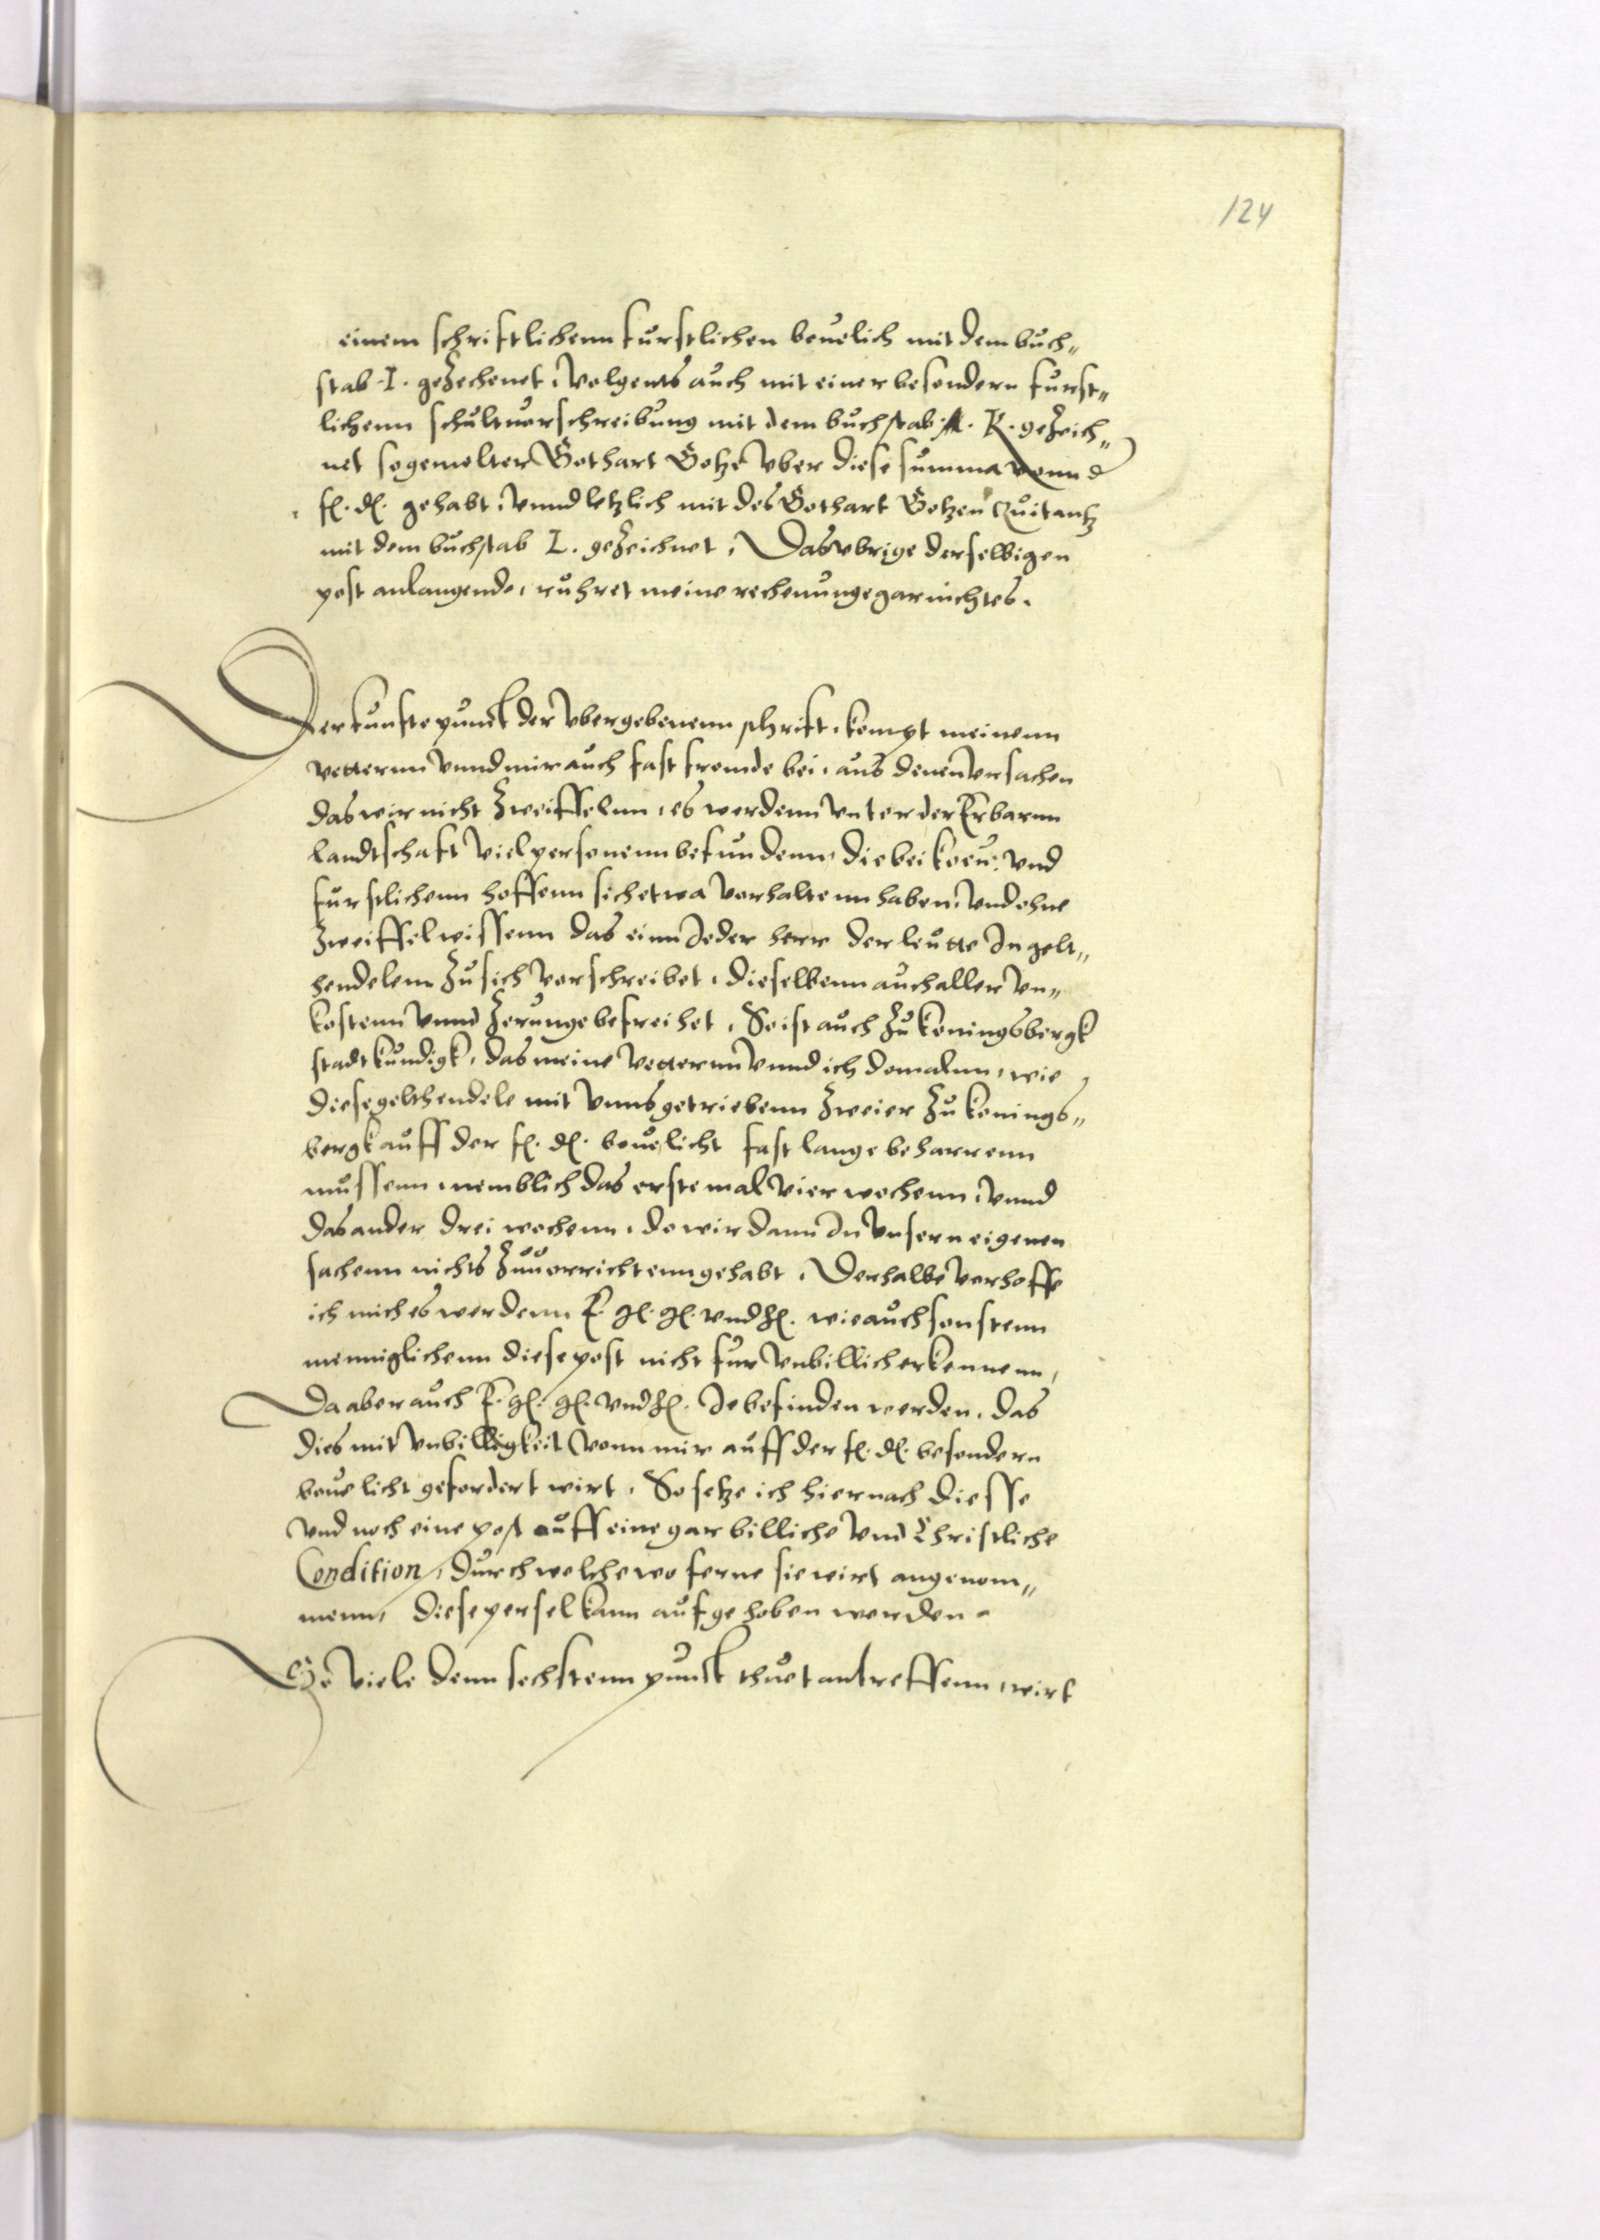 124
einem schriftlichenn furstlichen beuelich mit dem buch„
stab .I. geZechenet, volgents auch mit einer besondern furst„
lichenn schultuorschreibung mit dem buchstab .K. geZeich„
net so gemelter Gothart Gotze vber diese summa vonn d
f. d. gehabt, vnnd letzlich mit des Gothart Gotzen Quitantz
mit dem buchstab L. geZeichnet, Das vbrige derselbigen
post anlangende, ruhret meine rechenunge gar nichtes.
Der funfte punckt der vbergebenenn schrift, kompt meinenn
vetternn vnnd mir auch fast fremde bei, aus denen vrsachen
das wir nicht Zweiffelnn, es werdenn vnter der Erbarnn
landtschaft viel personenn befundenn, die bei koen: vnd
furstlichenn hoffenn sich etwa vorhaltenn haben, vnd ohne
Zweiffel wissenn das einn Jeder herr der leutte In gelt„
hendelenn Zu sich vorschreibet, dieselbenn auch aller vn„
kostenn vnnd Zerunge befreihet, So ist auch Zu koningsbergk
stadtkundigk, das meine vetternn vnnd ich domalnn, wie
diese gelthendele mit vnns getriebenn Zweier Zu konings„
bergk auff der f. d. beuelicht fast lange beharrenn
mussenn, nemblich das erste mal vier wochenn, vnnd
das ander drei wochenn, do wir dann In vnsern eigenen
sachenn nichts Zuuorrichtenn gehabt, Derhalbe vorhoffe
ich mich es werdenn E. g. g. vnd h. wie auch sonstenn
menniglichenn diese post nicht fur vnbillich erkennenn,
Da aber auch E. g. g. vnd h. Je befinden werden, das
dies mit vnbilligkeit vonn mir auff der f. d. besondern
beuelicht gefordert wirt, So setze ich hiernach diesse
vnd noch eine post auff eine gar billiche vnd Christliche
Condition, durch welche wo ferne sie wirt angenom„
menn, diese persel kann aufgehoben werden.
So viele denn sechstenn punckt thuet antreffenn, wirt